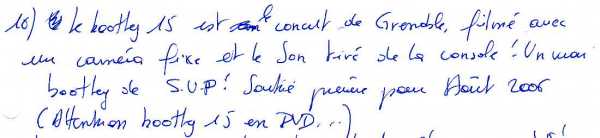 10) Le bootleg 15 est le concert de Grenoble, filmé avec
un caméra fixe et le son tiré de la console ! Un mai
bootleg de S.U.P ! Sortie prévue pour Août 2006
(Attention bootleg 15 en DVD...)